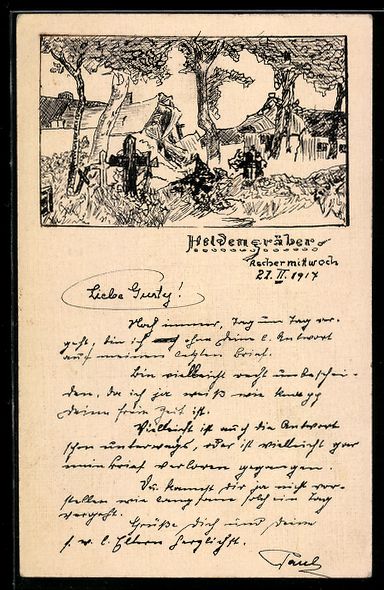 Heldengräber
Aschermittwoch
21. II. 1917
Liebe Gusty!
Noch immer, Tag um Tag ver-
geht, bin ich noch ohne deine l. Antwort
auf meinen letzten Brief.
Bin vielleicht recht unbeschei-
den, da ich ja weiß wie knapp
deine freie Zeit ist.
Vielleicht ist auch die Antwort
schon unterwegs, oder ist vielleicht gar
mein Brief verloren gegangen.
Du kannst dir ja nicht vor-
stellen wie langsam solch ein Tag
vergeht.
Grüße dich und deine
s. w. l. Eltern herzlichst.
Paul